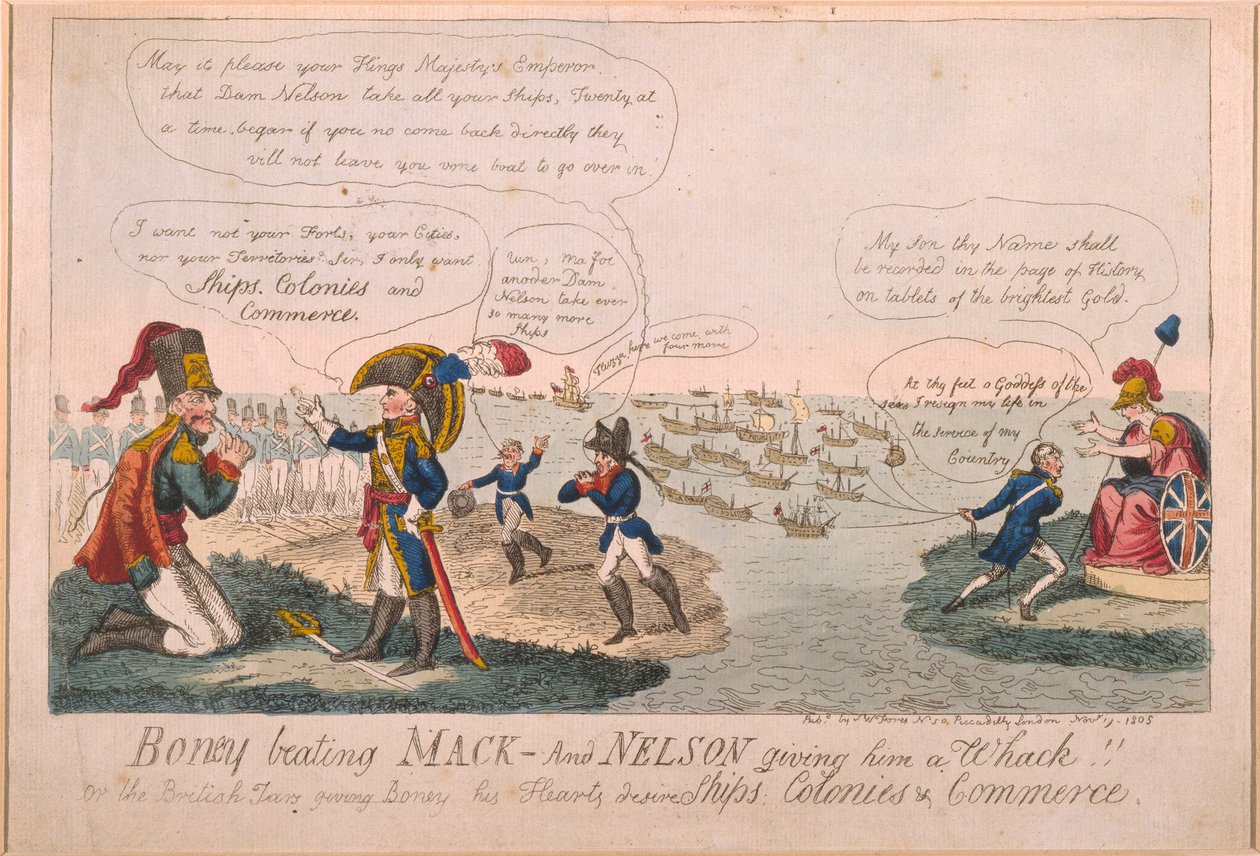 May it please your Kings Majesty's Emperor.
that Dam Nelson take all your Ships, Twenty at
a time. begar if you no come back directly they
vill not leave you vone boat to go over in!
I want not your Forts, your Cities,
nor your Territories! Sir, I only want
Ships. Colonies and
Commerce.
ma foi
anoder Dam
Nelson take ever
so many more
Ships
Huzza, here we come with
four more
My Son thy Name shall
be recorded in the page of History
on tablets of the brightest Gold.
At thy feet o Goddess of the
seas I resign my life in
the service of my
Country
Pubd. by S W Fores No 50, Piccadilly London Novr 19 - 1805
Boney beating MACK - And NELSON giving him a Whack!!
or the British Tars giving Boney his Hearts desire Ships. Colonies & Commerce.